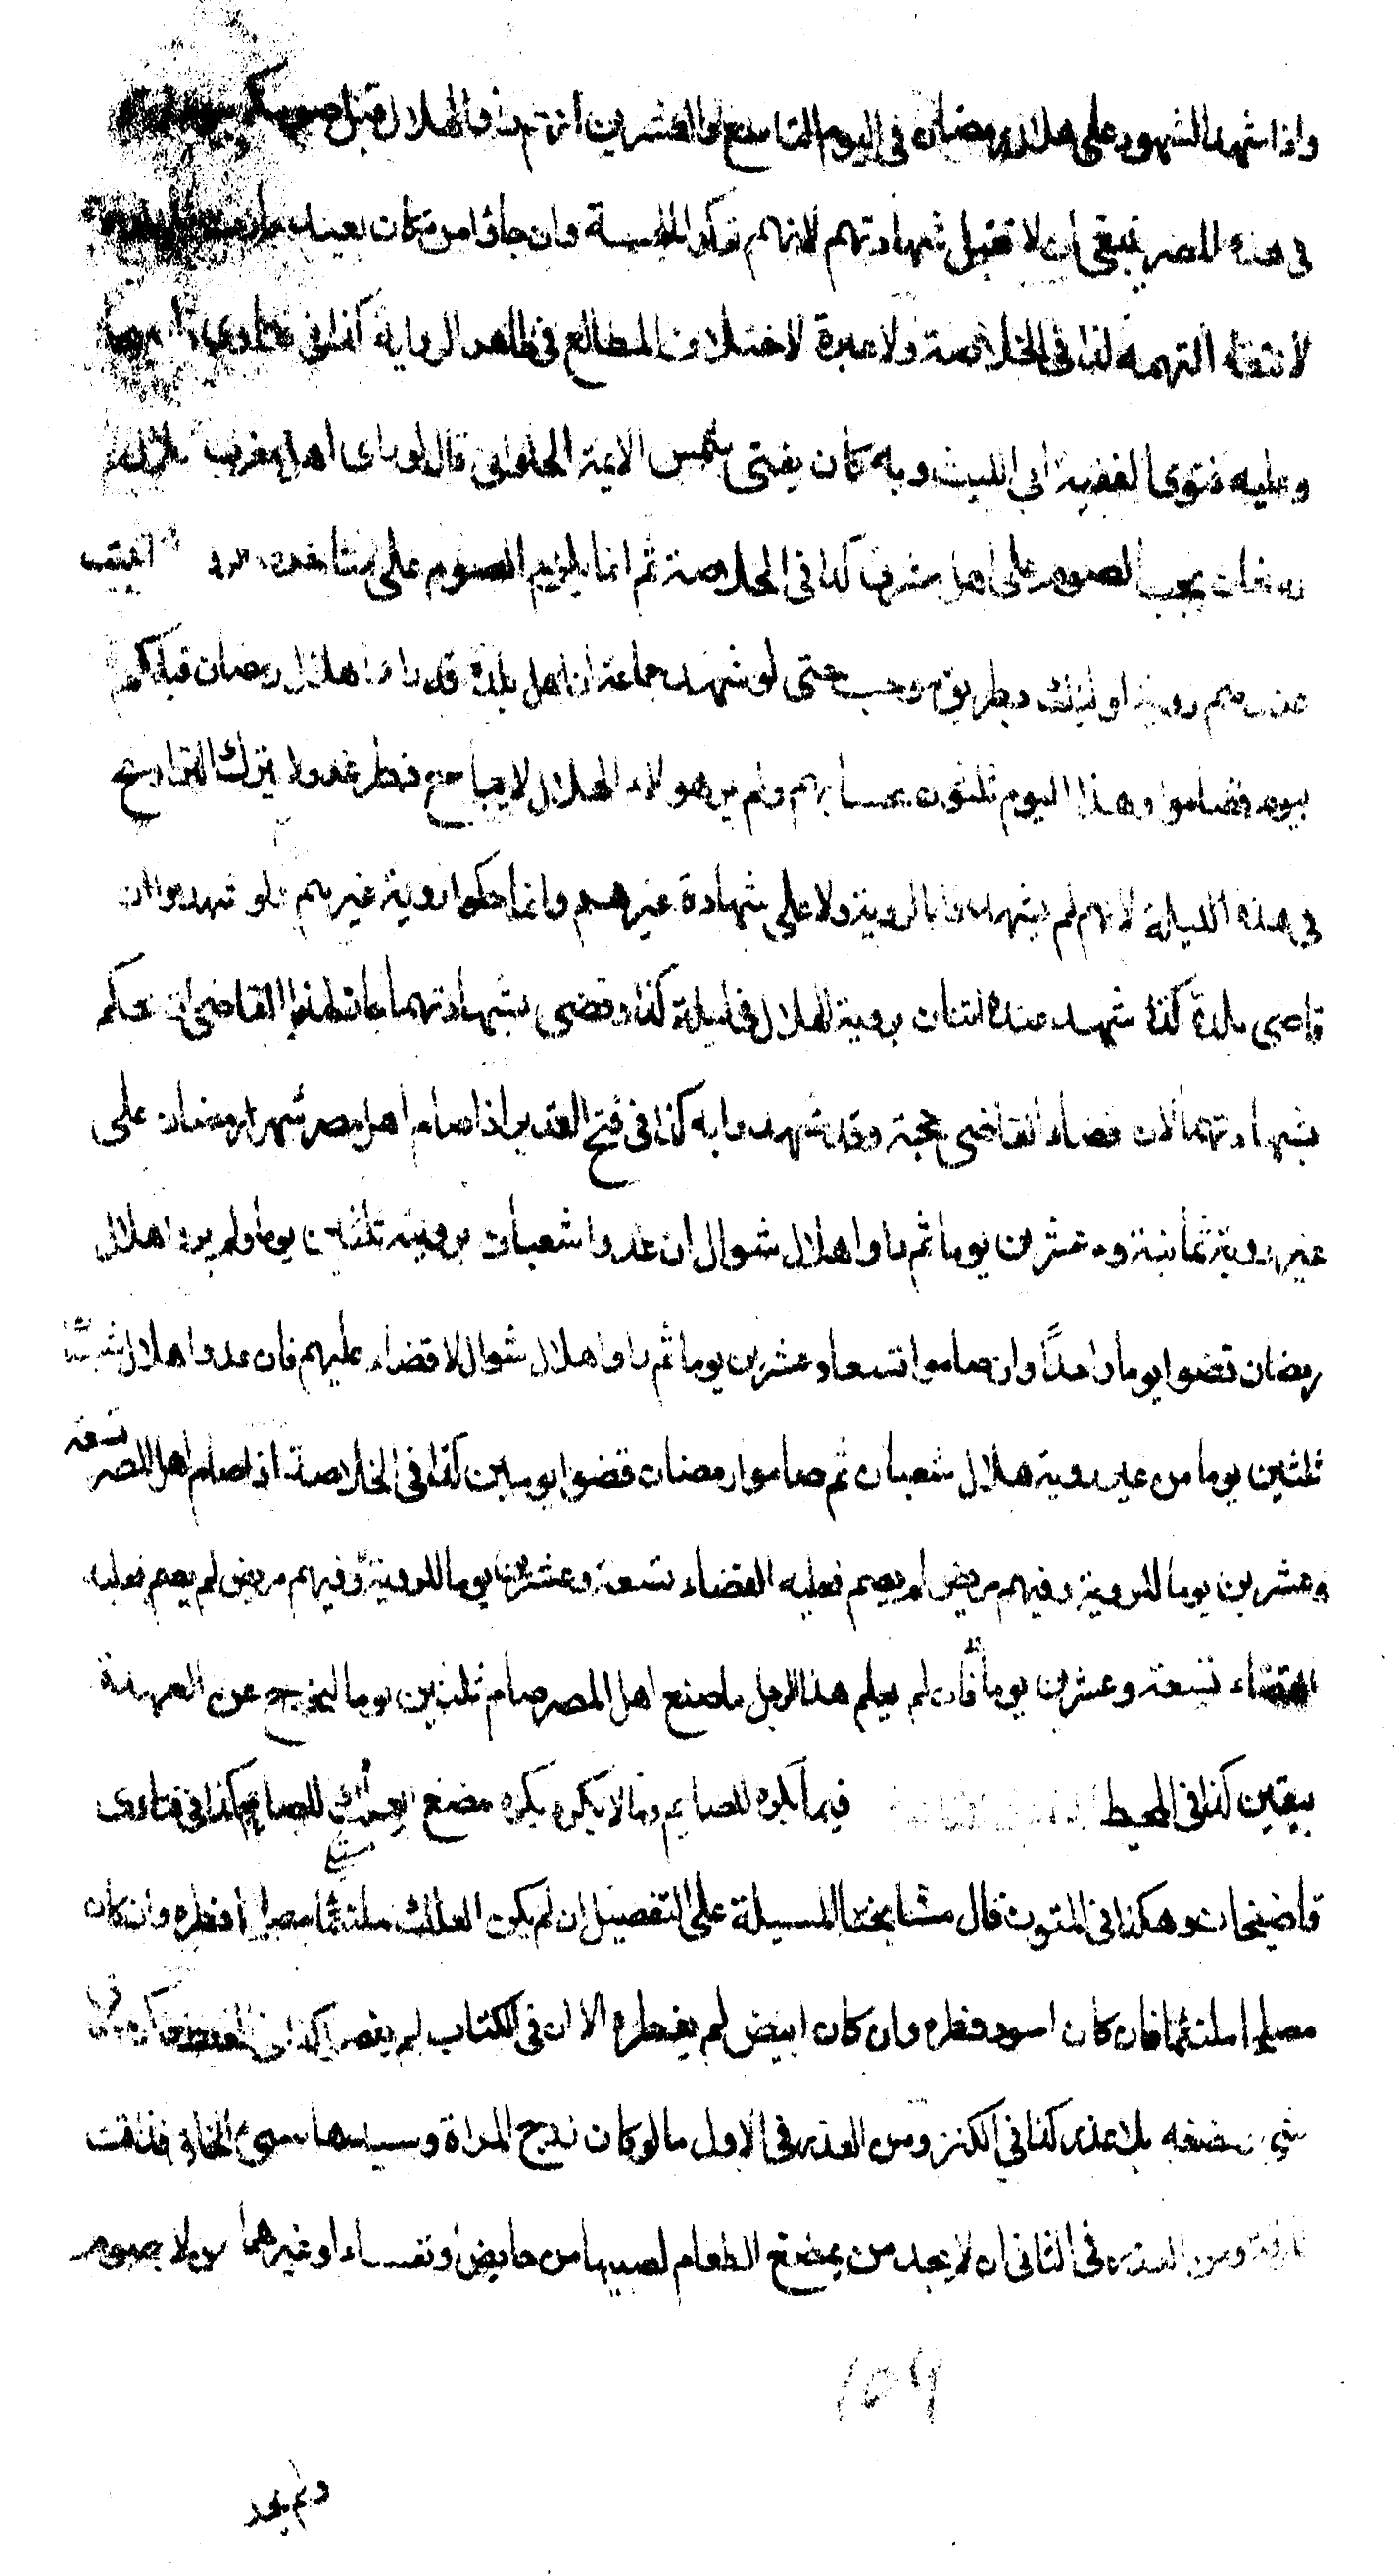 واذا شهد الشهود على هلال رمضان في اليوم التاسع والعشرين انهم رأوا الهلال قبل صومكم بيوم
في هذه المصر ينبغي ان لا تقبل شهادتهم لانهم تركوا الحسبة وان جاؤا من مكان بعيد
لانتفاء التهمة كذا في الخلاصة ولا عبرة لاختلاف المطالع في ظاهر الرواية كذا في فتاوى
وعليه فتوى الفقيه ابي الليث وبه كان يفتي شمس الايمة الحلواني قال لو راى اهل مغرب هلال
رمضان يجب الصوم على اهل مشرق كذا في الخلاصة ثم انما يلزم الصوم على
عندهم روية اوليك بطريق موجب حتى لو شهد جماعة ان اهل بلدة قد راوا هلال رمضان قبلكم
بيوم فصاموا وهذا اليوم ثلثون بحسابهم ولم ير هولاء الهلال لا يباح فطر غد ولا يترك التراويح
في هذه الليلة لانهم لم يشهدوا بالروية ولا على شهادة غيرهم وانما حكوا روية غيرهم ولو شهدوا ان
قاضي بلدة كذا شهد عنده اثنان بروية الهلال في ليلة كذا وقضى بشهادتهما جاز لهذا القاضي ان يحكم
بشهادتهما لان قضاء القاضي حجة وقد شهدوا به كذا في فتح القدير اذا صام اهل مصر شهر رمضان على
غير روية ثمانية وعشرين يوما ثم راوا هلال شوال ان عدوا شعبان بروية ثلثين يوما ولم يروا هلال
رمضان قضوا يوما واحداً وان صاموا تسعا وعشرين يوما ثم راوا هلال شوال لا قضاء عليهم فان عدوا هلال
ثلثين يوما من غير روية هلال شعبان ثم صاموا رمضان قضوا يومين كذا في الخلاصة اذا صام اهل المصر تسعة
وعشرين يوما للروية وفيهم مريض لم يصم فعليه القضاء تسعة وعشرين يوما للروية وفيهم مريض لم يصم فعليه
القضاء تسعة وعشرين يوما فان لم يعلم هذا الرجل ما صنع اهل المصر صام ثلثين يوما ليخرج عن العهدة
بيقين كذا في المحيط فيما يكره للصايم وما لا يكره يكره مضغ العلك للصايم كذا في فتاوى
قاضيخان وهكذا في المتون قال مشايخنا المسيلة على التفصيل ان لم يكن العلك ملتئما مصلحا افطره وان كان
مصلحا ملتئما فان كان اسود فطره وان كان ابيض لم يفطره الا ان في الكتاب لم يفصل كذا في
شي ومضغه بلا عذر كذا في الكنز ومن العذر في الاول ما لو كان زوج المراة وسيدها سيئ الخلق فذاقت
المرقة ومن العذر في الثاني ان لا يجد من يمضغ الطعام لصبيها من حايض او نفساء او غيرهما ممن لا يصوم
١٥٩
ولم يجد